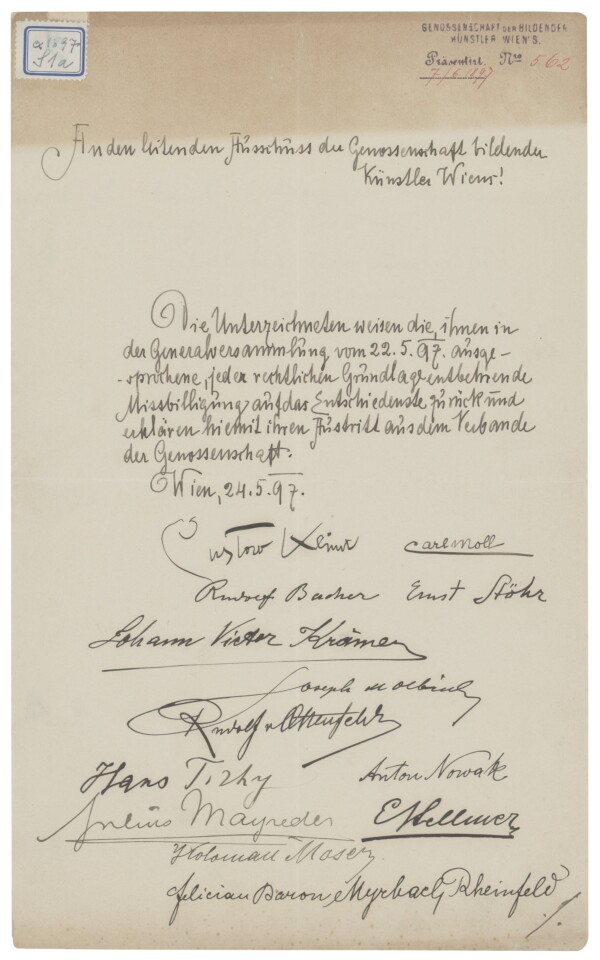 1897
S1a
GENOSSENSCHAFT DER BILDENDEN
KÜNSTLER WIEN'S.
Präsentirt. Nro 562
7/6 1897
An den leitenden Ausschuss der Genossenschaft bildender
Künstler Wiens!
Die Unterzeichneten weisen die, ihnen in
der Generalversammlung vom 22.5.97. ausge-
-sprochene, jeder rechtlichen Grundlage entbehrende
Missbilligung auf das Entschiedenste zurück und
erklären hiemit ihren Austritt aus dem Verbande
der Genossenschaft.
Wien, 24.5.97.
Gustav Klimt Carl Moll
Rudolf Bacher Ernst Stöhr
Johann Victor Krämer
Joseph M Olbrich
Rudolf v Ottenfeld
Hans Tichy Anton Nowak
Julius Mayreder E Hellmer
Koloman Moser.
Felician Baron Myrbach Rheinfeld